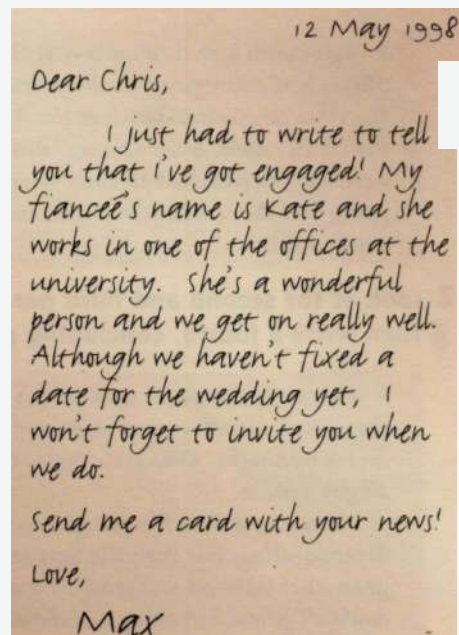 12 May 1998
Dear Chris,
I just had to write to tell
you that I've got engaged! My
fianceé's name is Kate and she
works in one of the offices at the
university. She's a wonderful
person and we get on really well.
Although we haven't fixed a
date for the wedding yet, I
won't forget to invite you when
we do.
Send me a card with your news!
Love,
Max